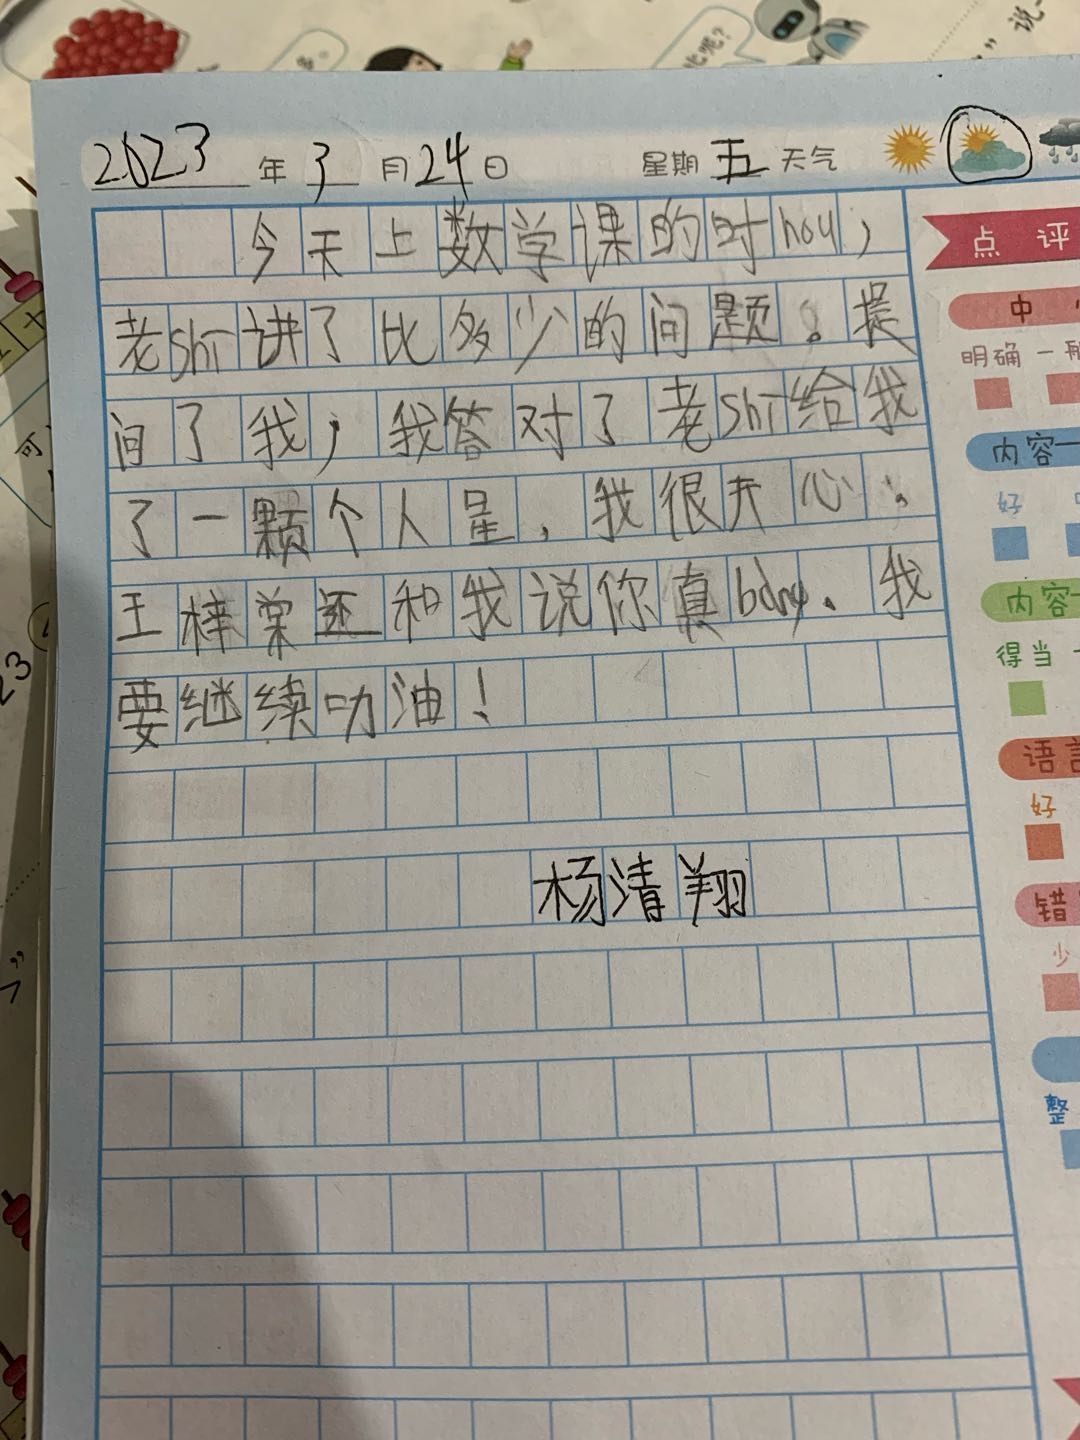 2023 年 3 月 24 日 星期 五 天气
今天上数学课的时hou，
老shī讲了比多少的问题。提
问了我，我答对了老shī给我
了一颗个人星，我很开心。
王梓棠还和我说你真bàng。我
要继续叻油！
杨清翔
点评
中
明确 一般
内容一
好
内容一
得当
语言
好
错
少
整
可
23
说